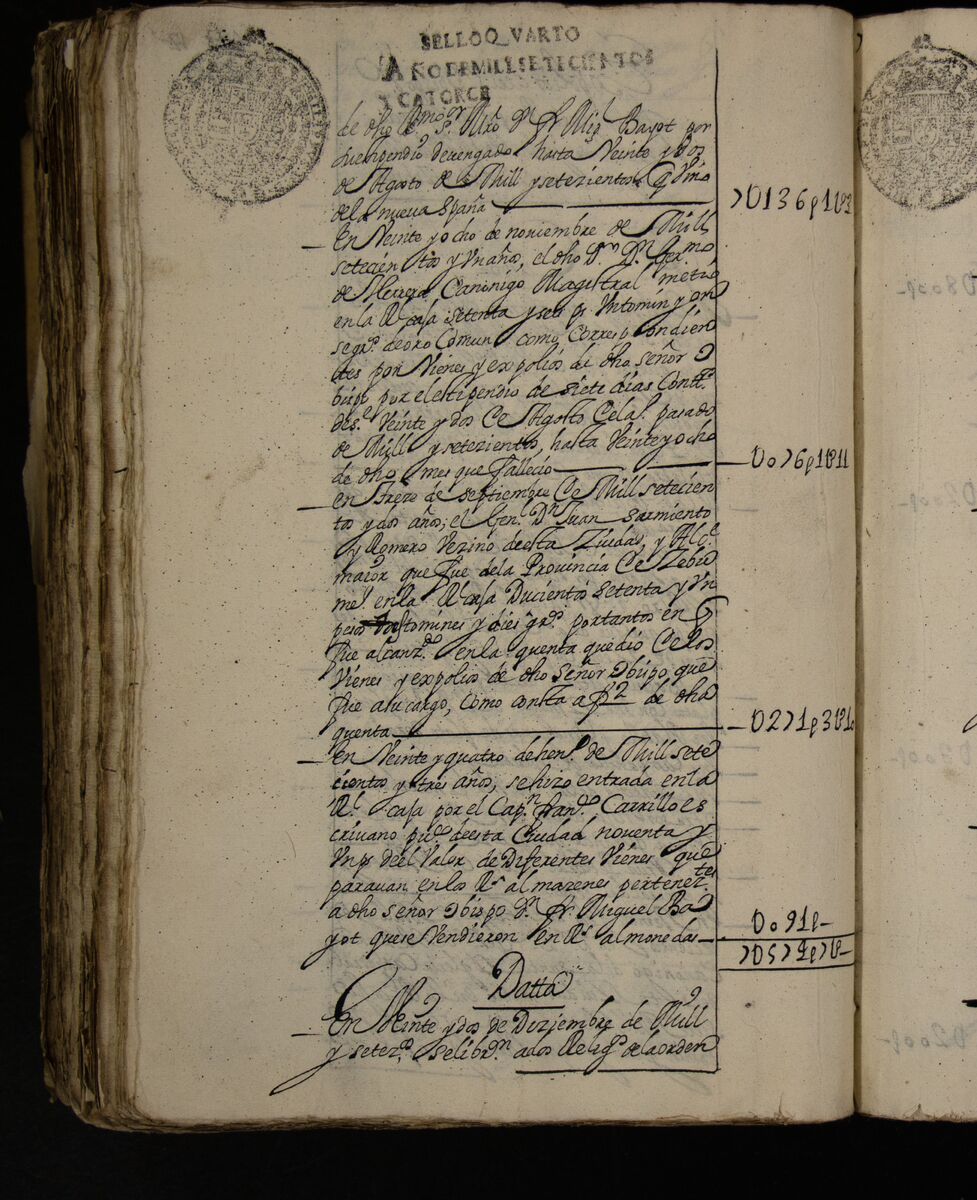 SELLO QVARTO
AÑO DE MILL SETECIENTOS
Y CATORCE
de dho Yll.mo S.r Mrõ D.n fr Mig.l Bayot por
su estipendio devengado hasta Veinte y dos
de Agosto de Mill y setezientos
de la nueva españa
7U136p1t
En Veinte y ocho de noviembre de Mill
setecientos y Vn años, el dho D.n Ger.mo
de Herrera Canonigo Magistral metio
en la R.l casa setenta y seis p.s Vn tomin y on
se gr.s de oro Comun como Correspondien
tes por Vienes y expolios de dho señor O
bispo por el estipendio de siete dias Cont.s
desde Veinte y dos de Agosto del a.o pasado
de Mill y setezientos, hasta Veinte y ocho
de dho mes que fallecio
U076p1t11
en treze de septiembre de Mill setecien
tos y dos años, el Gen.l D.n Juan Sarmiento
y Romero Vezino de esta Ziudad, y Alc.e
maior que fue de la Provincia de Zebu
me.o en la R.l casa Ducientos setenta y Vn
pesos tres tomines y dies gr.s por tantos en q
fue alcanz.do en la quenta que dio de los
Vienes y expolios de dho señor Obispo, que
fue a su cargo, como consta a f.s 2 de dha
quenta
U271p3t10
En Veinte y quatro de hen.o de Mill sete
cientos y tres años, se hizo entrada en la
R.l casa por el Cap.n fran.co Carrillo es
crivano pu.co de esta Ciudad noventa y
Vn p.s de el Valor de Diferentes Vienes que
paravan en los R.s almazenes pertenez.tes
a dho señor Obispo D.n fr. Miguel Ba
yot que se Vendieron en R.l almoneda
U091p
Datta
En Veinte y dos de Diziembre de Mill
y setez.os se libr.on a los Relig.s de la orden